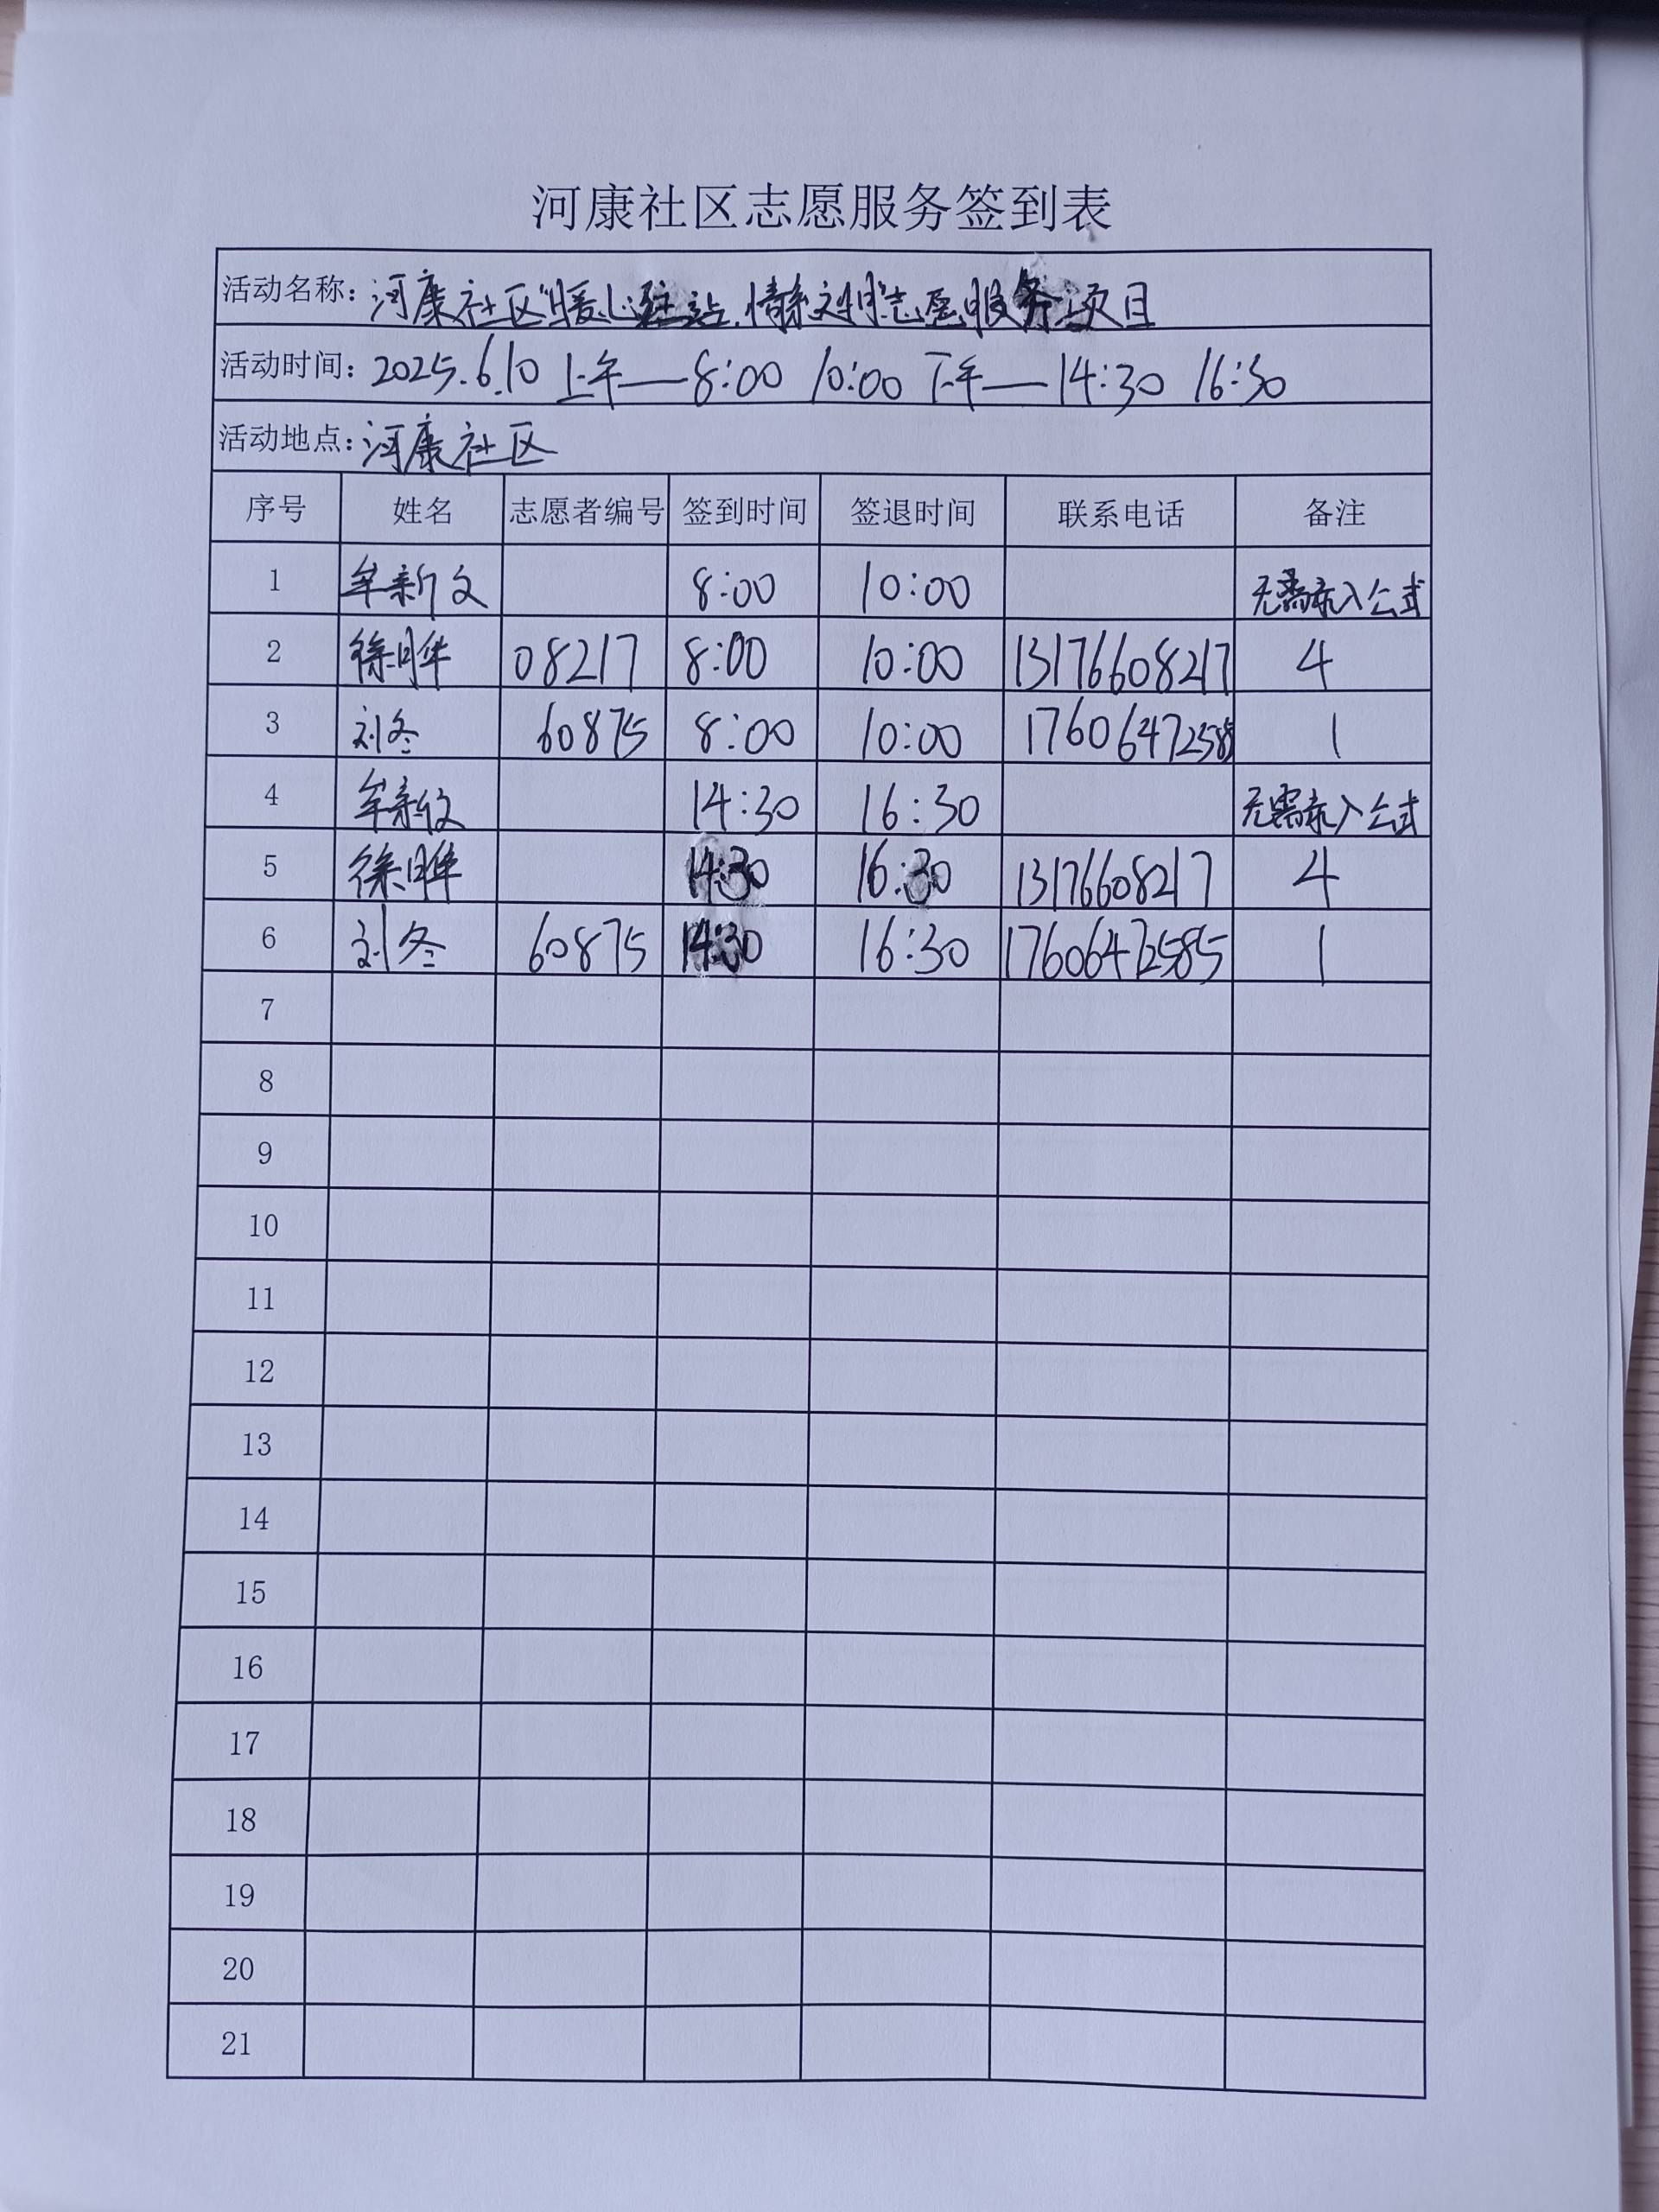 河康社区志愿服务签到表
活动名称：河康社区"暖心驻站.情系文明"志愿服务项目
活动时间：2025.6.10 上午—8:00 10:00 下午—14:30 16:30
活动地点：河康社区
序号 姓名 志愿者编号 签到时间 签退时间 联系电话 备注
1 牟新文 8:00 10:00 无需录入公式
2 徐明华 08217 8:00 10:00 13176608217 4
3 刘冬 60875 8:00 10:00 17606472585 1
4 牟新文 14:30 16:30 无需录入公式
5 徐明华 14:30 16:30 13176608217 4
6 刘冬 60875 14:30 16:30 17606472585 1
7
8
9
10
11
12
13
14
15
16
17
18
19
20
21